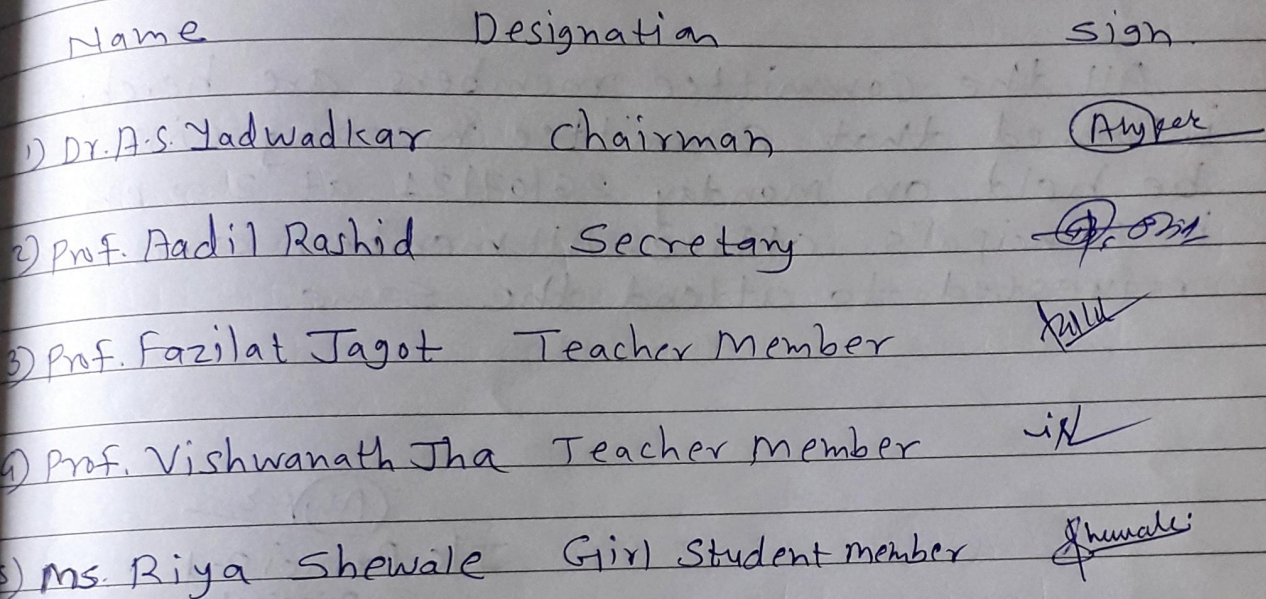 Name Designation Sign
1) Dr. A.S. Yadwadkar Chairman
2) Prof. Aadil Rashid Secretary
3) Prof. Fazilat Jagot Teacher Member
4) Prof. Vishwanath Jha Teacher member
5) Ms. Riya Shewale Girl Student member